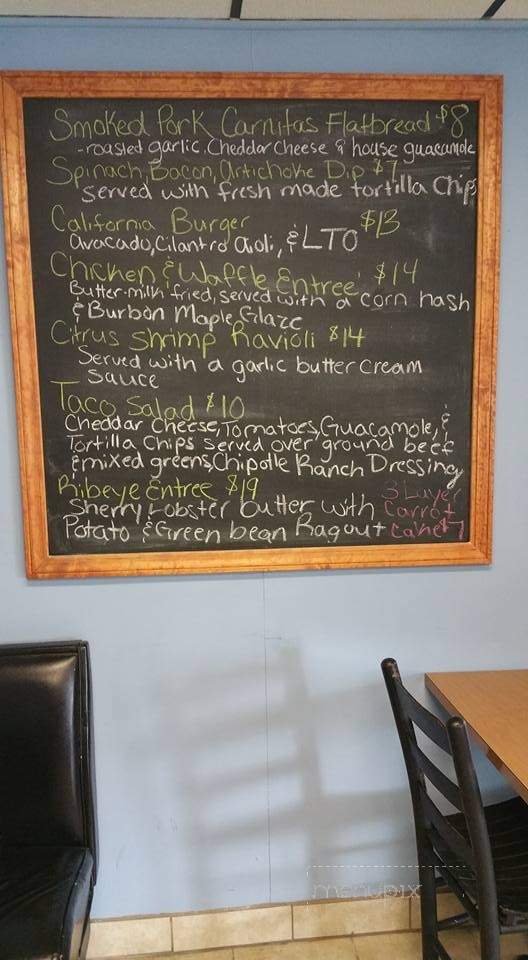 Smoked Pork Carnitas Flatbread $8
-roasted garlic, Cheddar Cheese & house guacamole
Spinach, Bacon, Artichoke Dip $7
served with fresh made tortilla Chips
California Burger $13
avacado, Cilantro aioli, & LTO
Chicken & Waffle Entree $14
Butter-milk fried, served with a corn hash
& Burbon Maple Glaze
Citrus Shrimp Ravioli $14
Served with a garlic butter cream
Sauce
Taco Salad $10
Cheddar Cheese, Tomatoes, Guacamole, &
Tortilla Chips served over ground beef
& mixed greens, Chipotle Ranch Dressing
Ribeye Entree $19
Sherry Lobster butter with
Potato & Green bean Ragout
3 Layer
Carrot
Cake $7
menupix